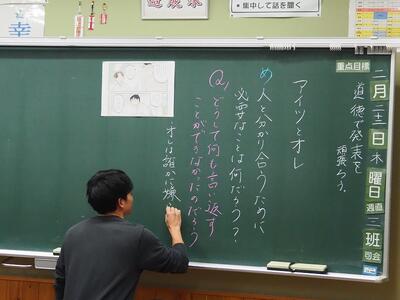 集中して話を聞く
重点目標
道徳で発表を
頑張ろう。
二月二十二日木曜日
週直
三班
司会
アイツとオレ
め 人と分かり合うために
必要なことは何だろう？
Q1 どうして何も言い返す
ことができなかったのだろう
オレは誰かに嫌